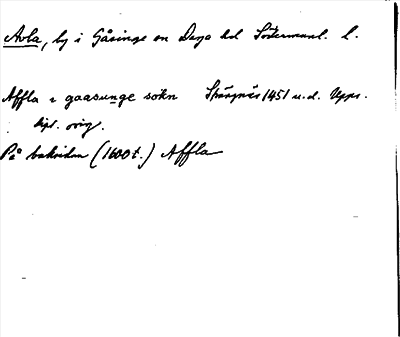 Avla, by i Gåsinge sn Daga hd Södermanl. l.
Affla i gaasunge sokn Strängnäs 1451 u.d. Upps.
dipl. orig.
På baksidan (1600 t.) Affla